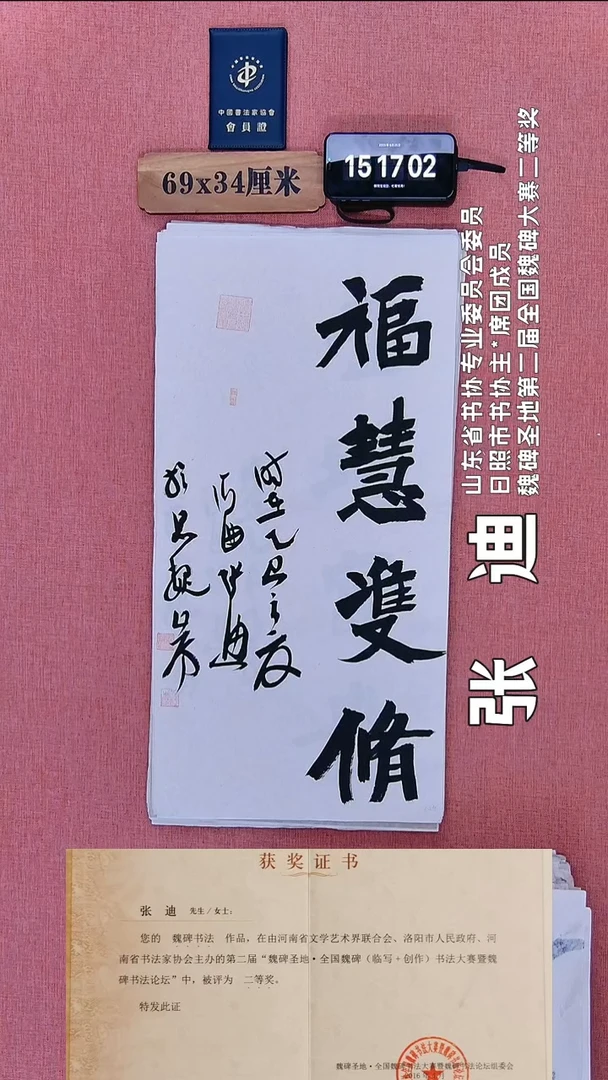 中國書法家協會
會員證
69x34厘米
15 17 02
福慧雙脩
时在乙巳之夏
张迪
山东省书协专业委员会委员
日照市书协主*席团成员
魏碑圣地第二届全国魏碑大赛二等奖
张 迪
获奖证书
张 迪 先生/女士：
您的 魏碑书法 作品，在由河南省文学艺术界联合会、洛阳市人民政府、河
南省书法家协会主办的第二届“魏碑圣地·全国魏碑（临写+创作）书法大赛暨魏
碑书法论坛”中，被评为 二等奖。
特发此证
魏碑圣地·全国魏碑书法大赛暨魏碑书法论坛组委会